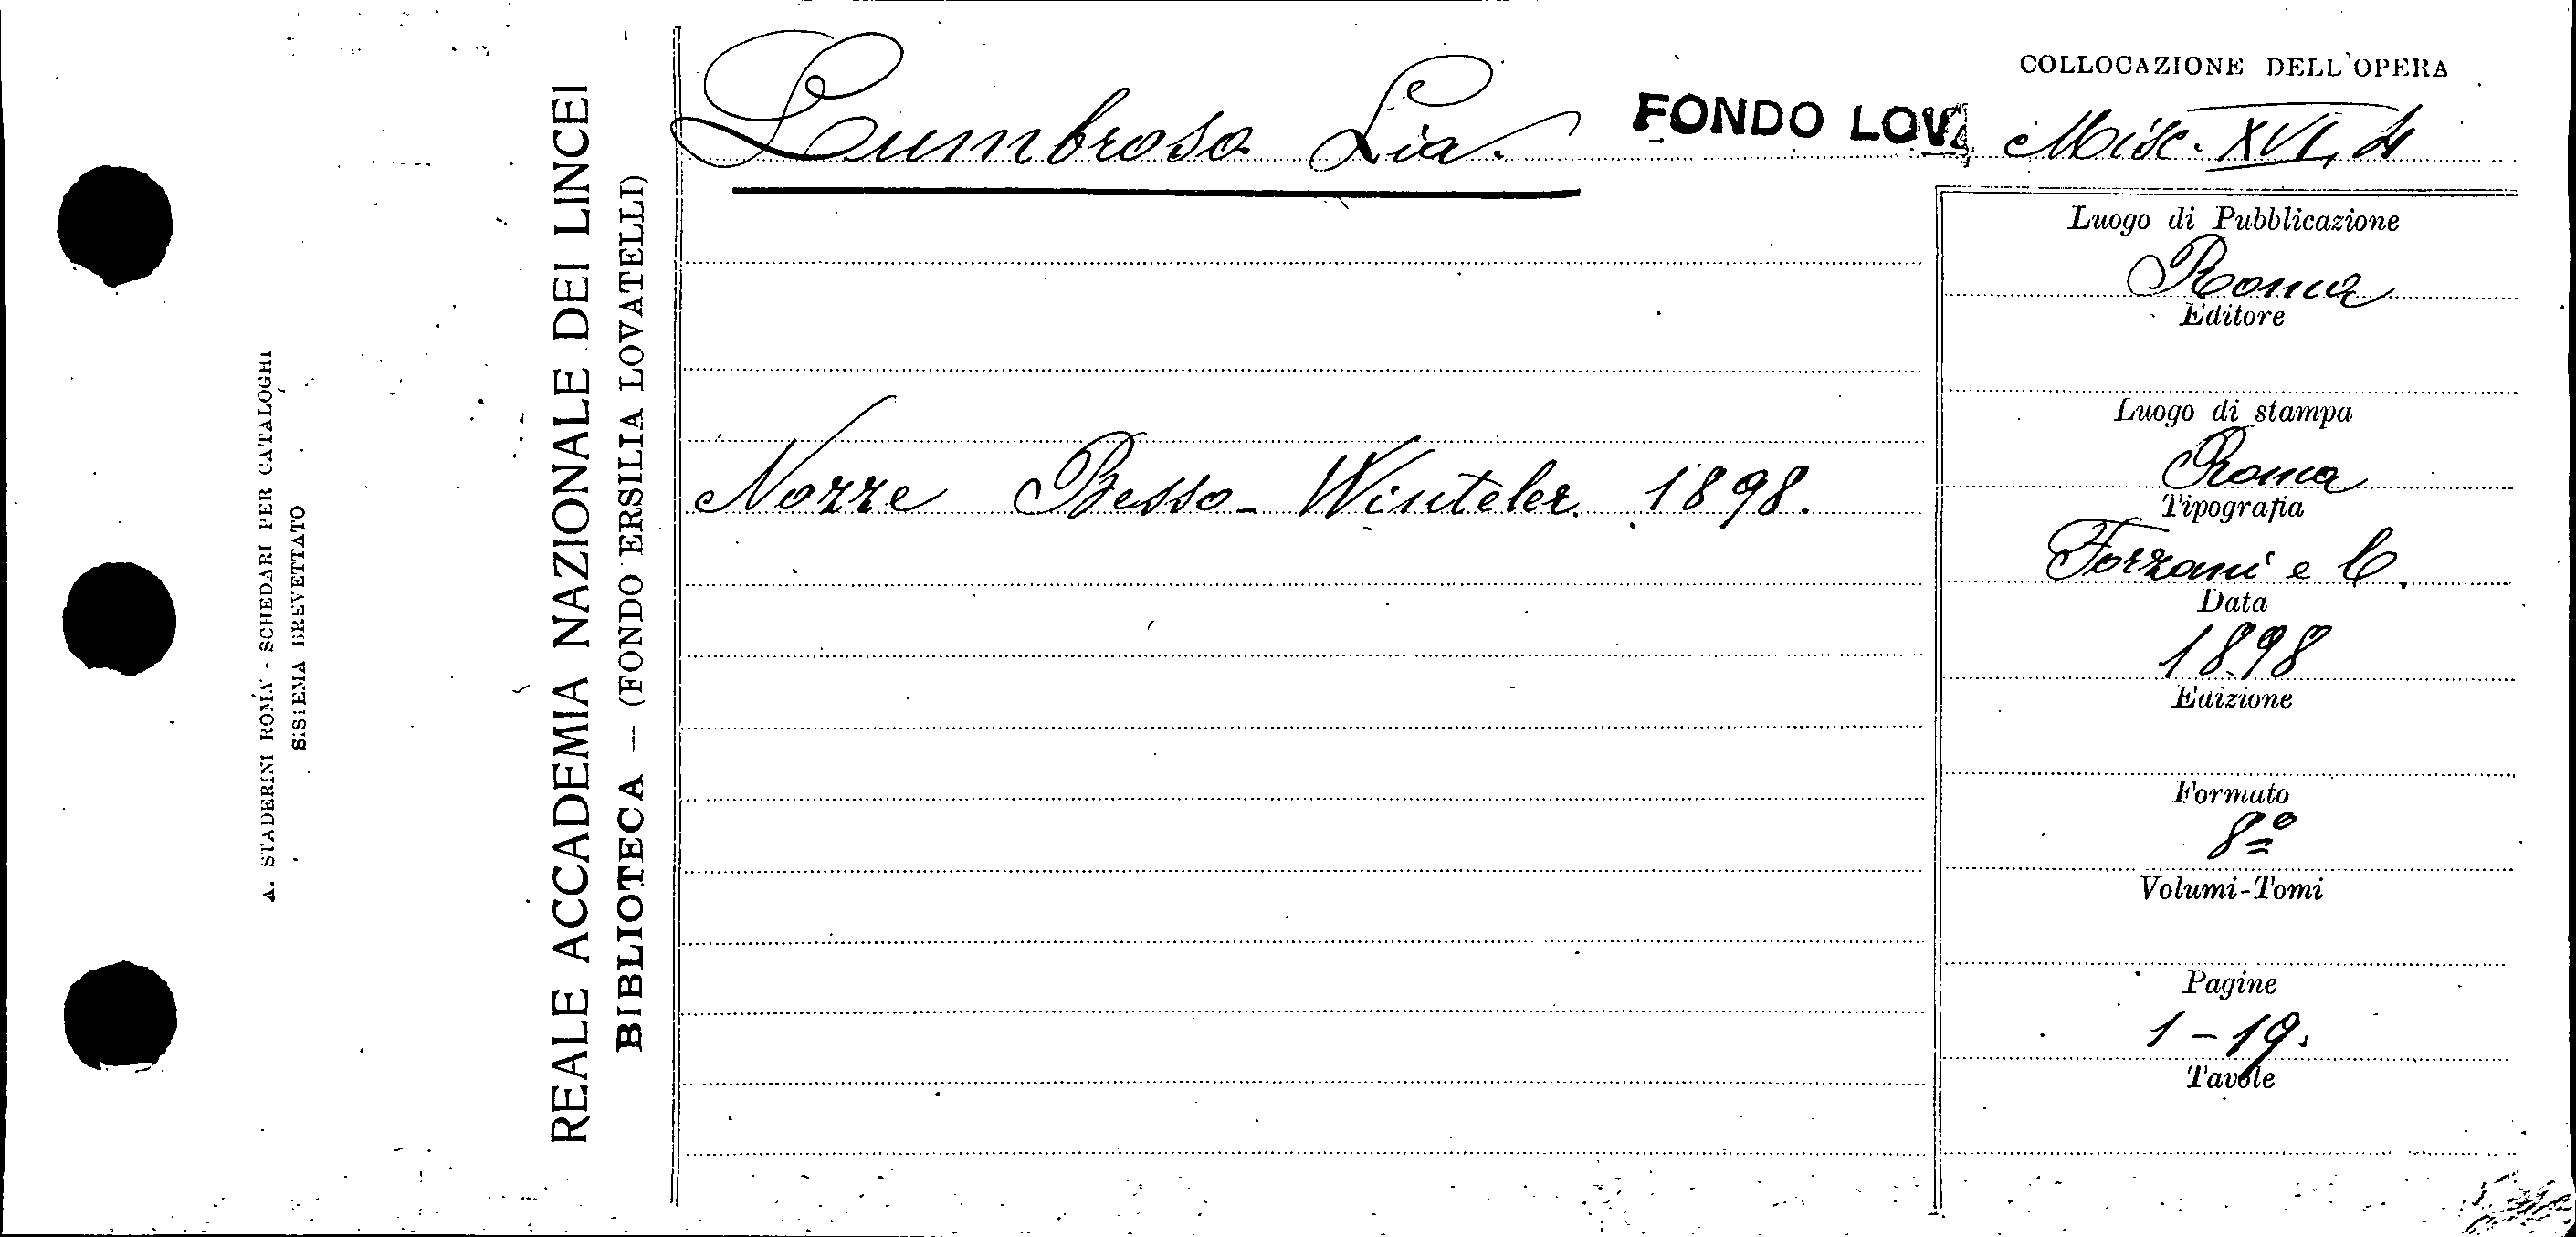 A. STADERINI ROMA - SCHEDARI PER CATALOGHI
SISTEMA BREVETTATO
REALE ACCADEMIA NAZIONALE DEI LINCEI
BIBLIOTECA — (FONDO ERSILIA LOVATELLI)
Lumbroso Lia.
FONDO LOVA
COLLOCAZIONE DELL'OPERA
Misc. XVI, 4
Nozze Besso-Winteler. 1898.
Luogo di Pubblicazione
Roma
Editore
Luogo di stampa
Roma
Tipografia
Forzani e C.
Data
1898
Edizione
Formato
8º
Volumi-Tomi
Pagine
1-19.
Tavole